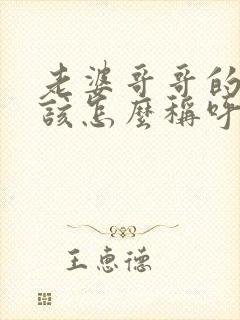 老婆哥哥的
該怎麼稱呼
王惠德